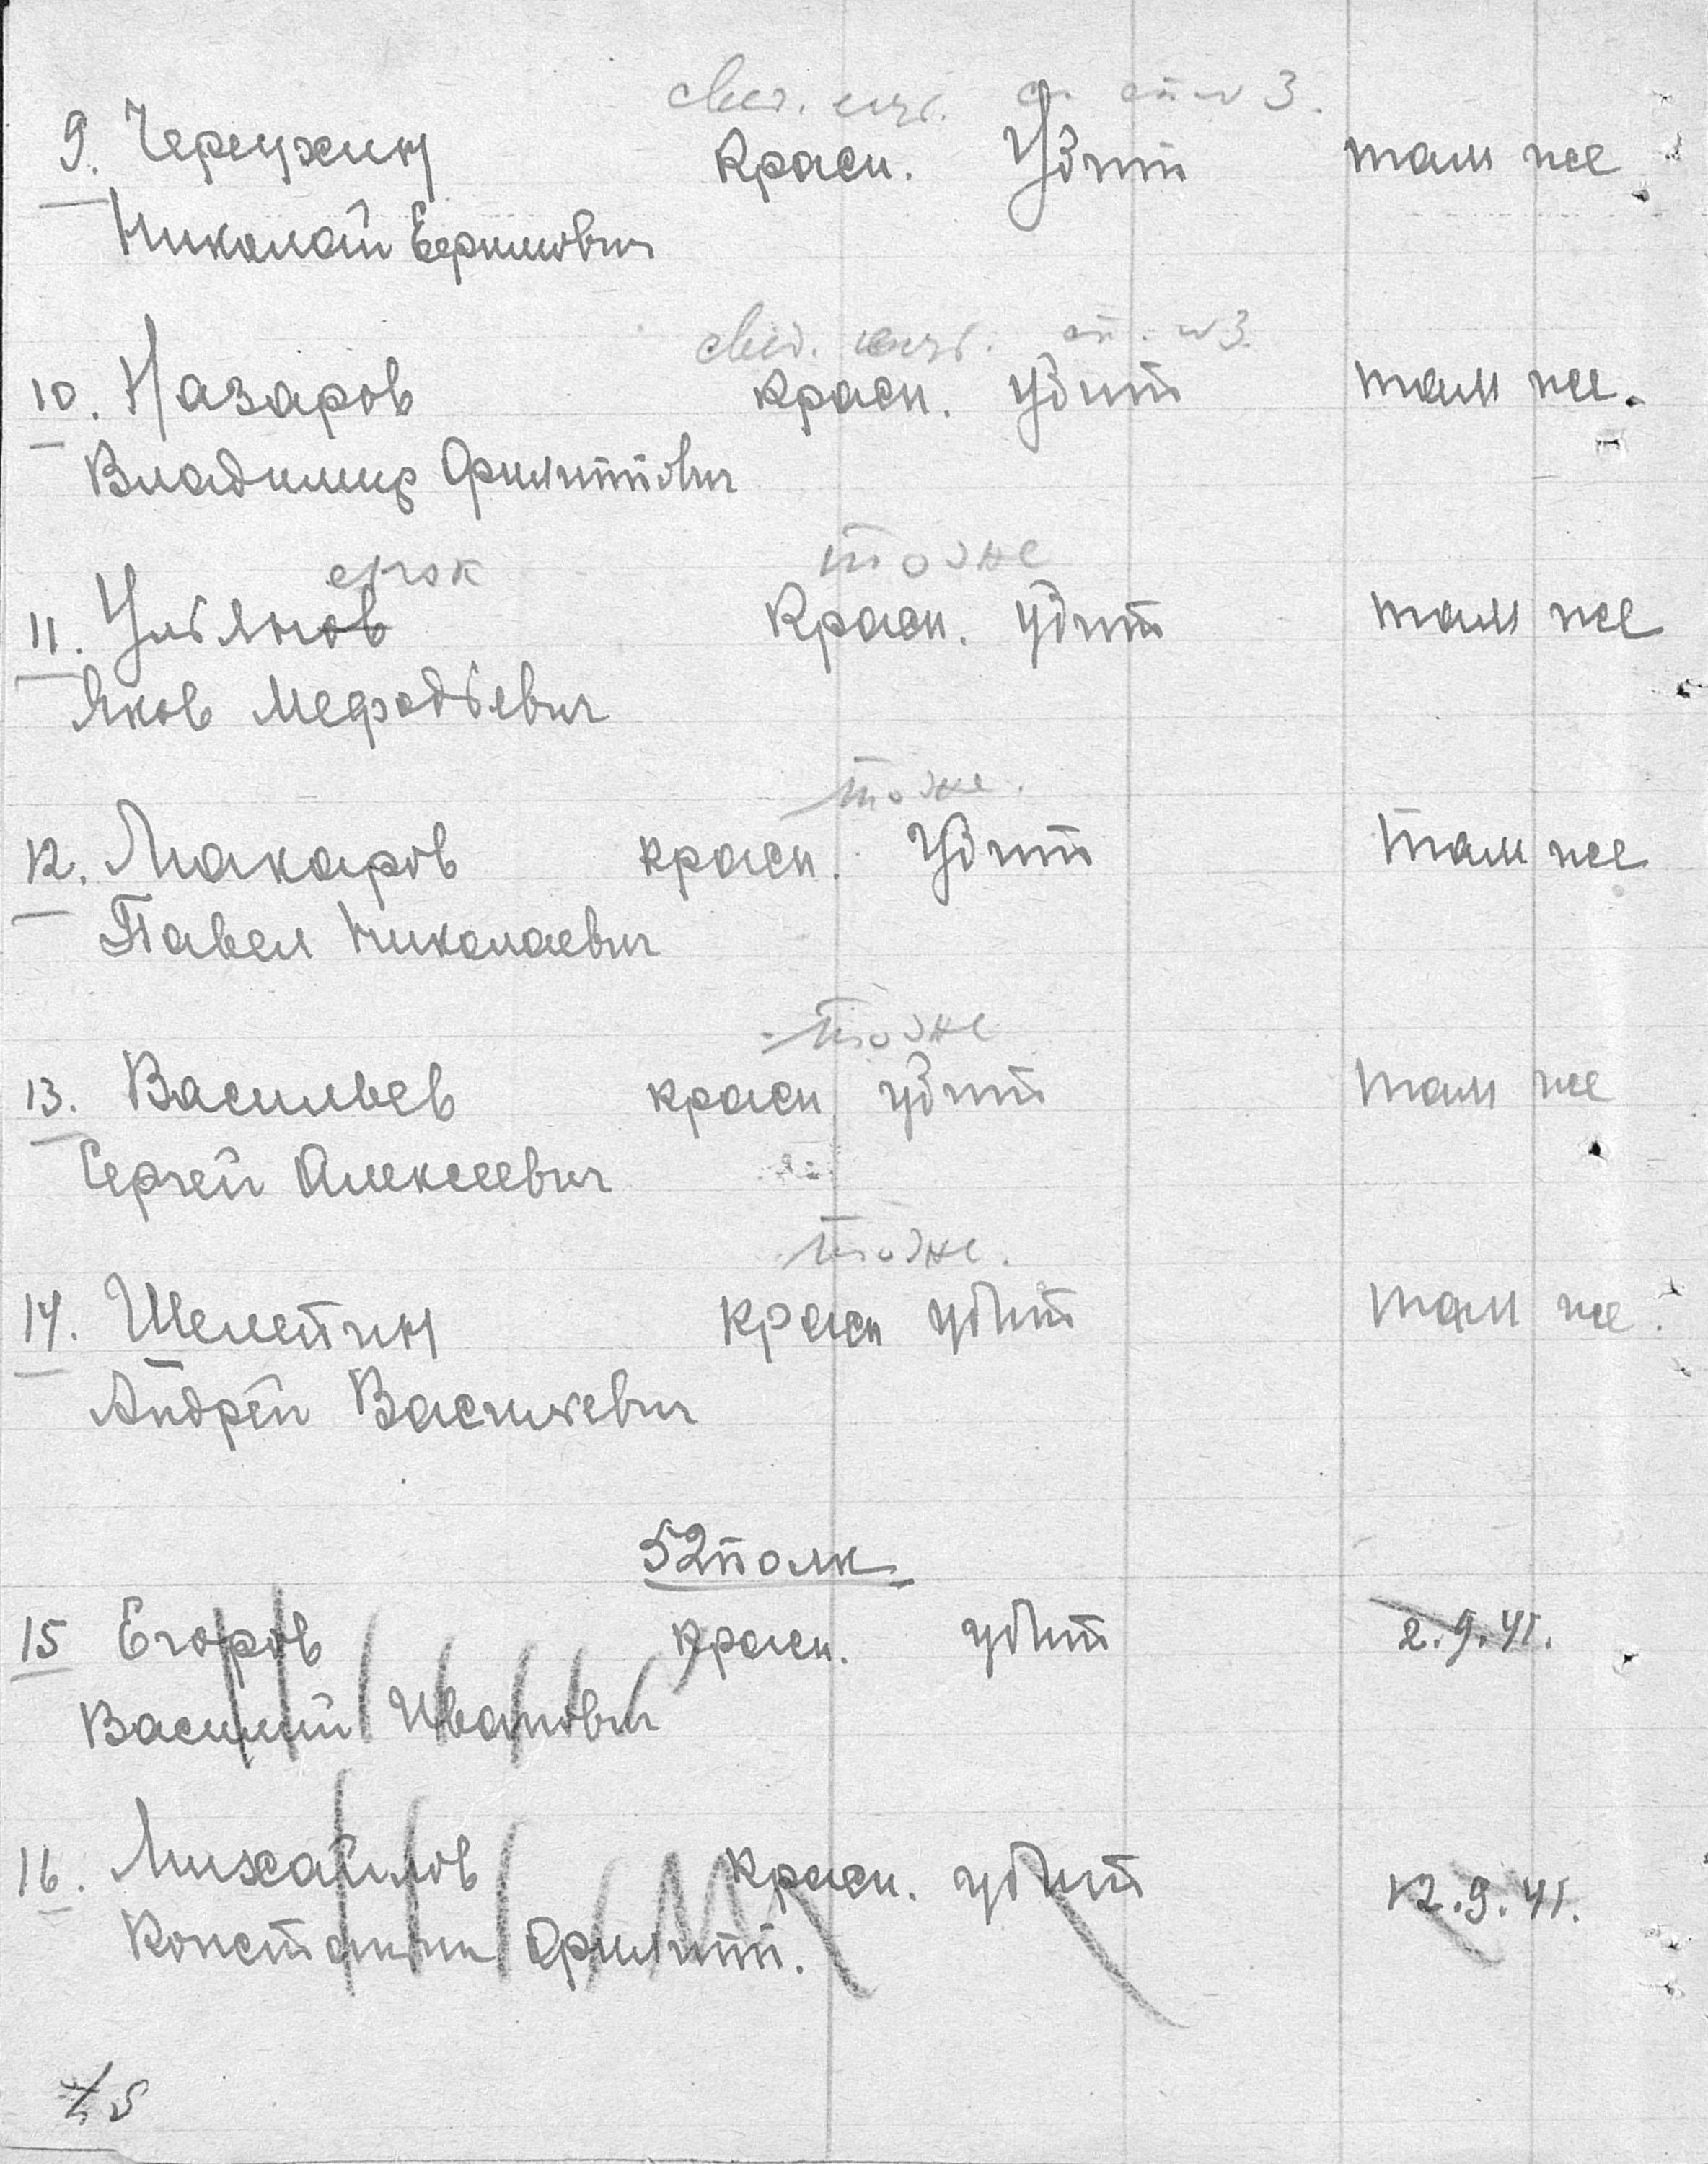 сп. № 3.
9. Черемухин Красн. Убит там же
Николай Ефимович
сп. № 3.
10. Назаров Красн. убит там же.
Владимир Филиппович
то же
11. Ульянов Красн. убит там же
Яков Мефодьевич
то же.
12. Макаров красн. убит там же
Павел Николаевич
то же
13. Васильев красн убит там же
Сергей Алексеевич
то же.
14. Шелепин красн убит там же.
Андрей Васильевич
52 полк
15 Егоров красн. убит 2.9.41.
Василий Иванович
16. Михайлов красн. убит 12.9.41.
Константин Филипп.